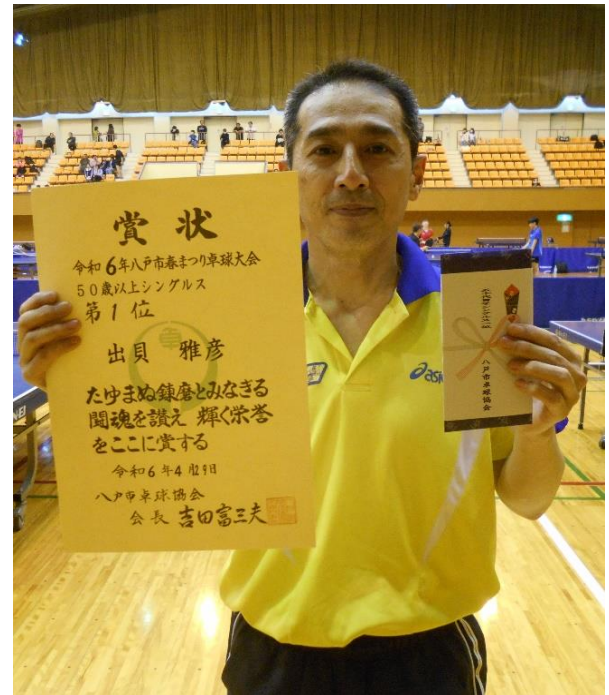 賞状
令和6年八戸市春まつり卓球大会
50歳以上シングルス
第1位
出貝 雅彦
たゆまぬ錬磨とみなぎる
闘魂を讃え 輝く栄誉
をここに賞する
令和6年4月29日
八戸市卓球協会
会長 吉田富三夫
asics
八戸市卓球協会